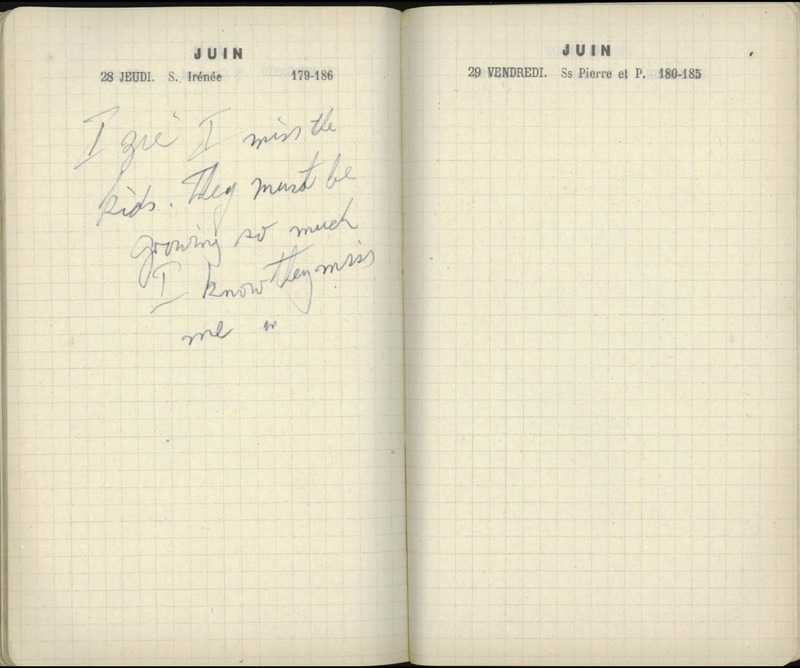 JUIN
28 JEUDI. S. Irénée 179-186
I I miss the
kids. They must be
growing so much
I know they miss
me
JUIN
29 VENDREDI. Ss Pierre et P. 180-185